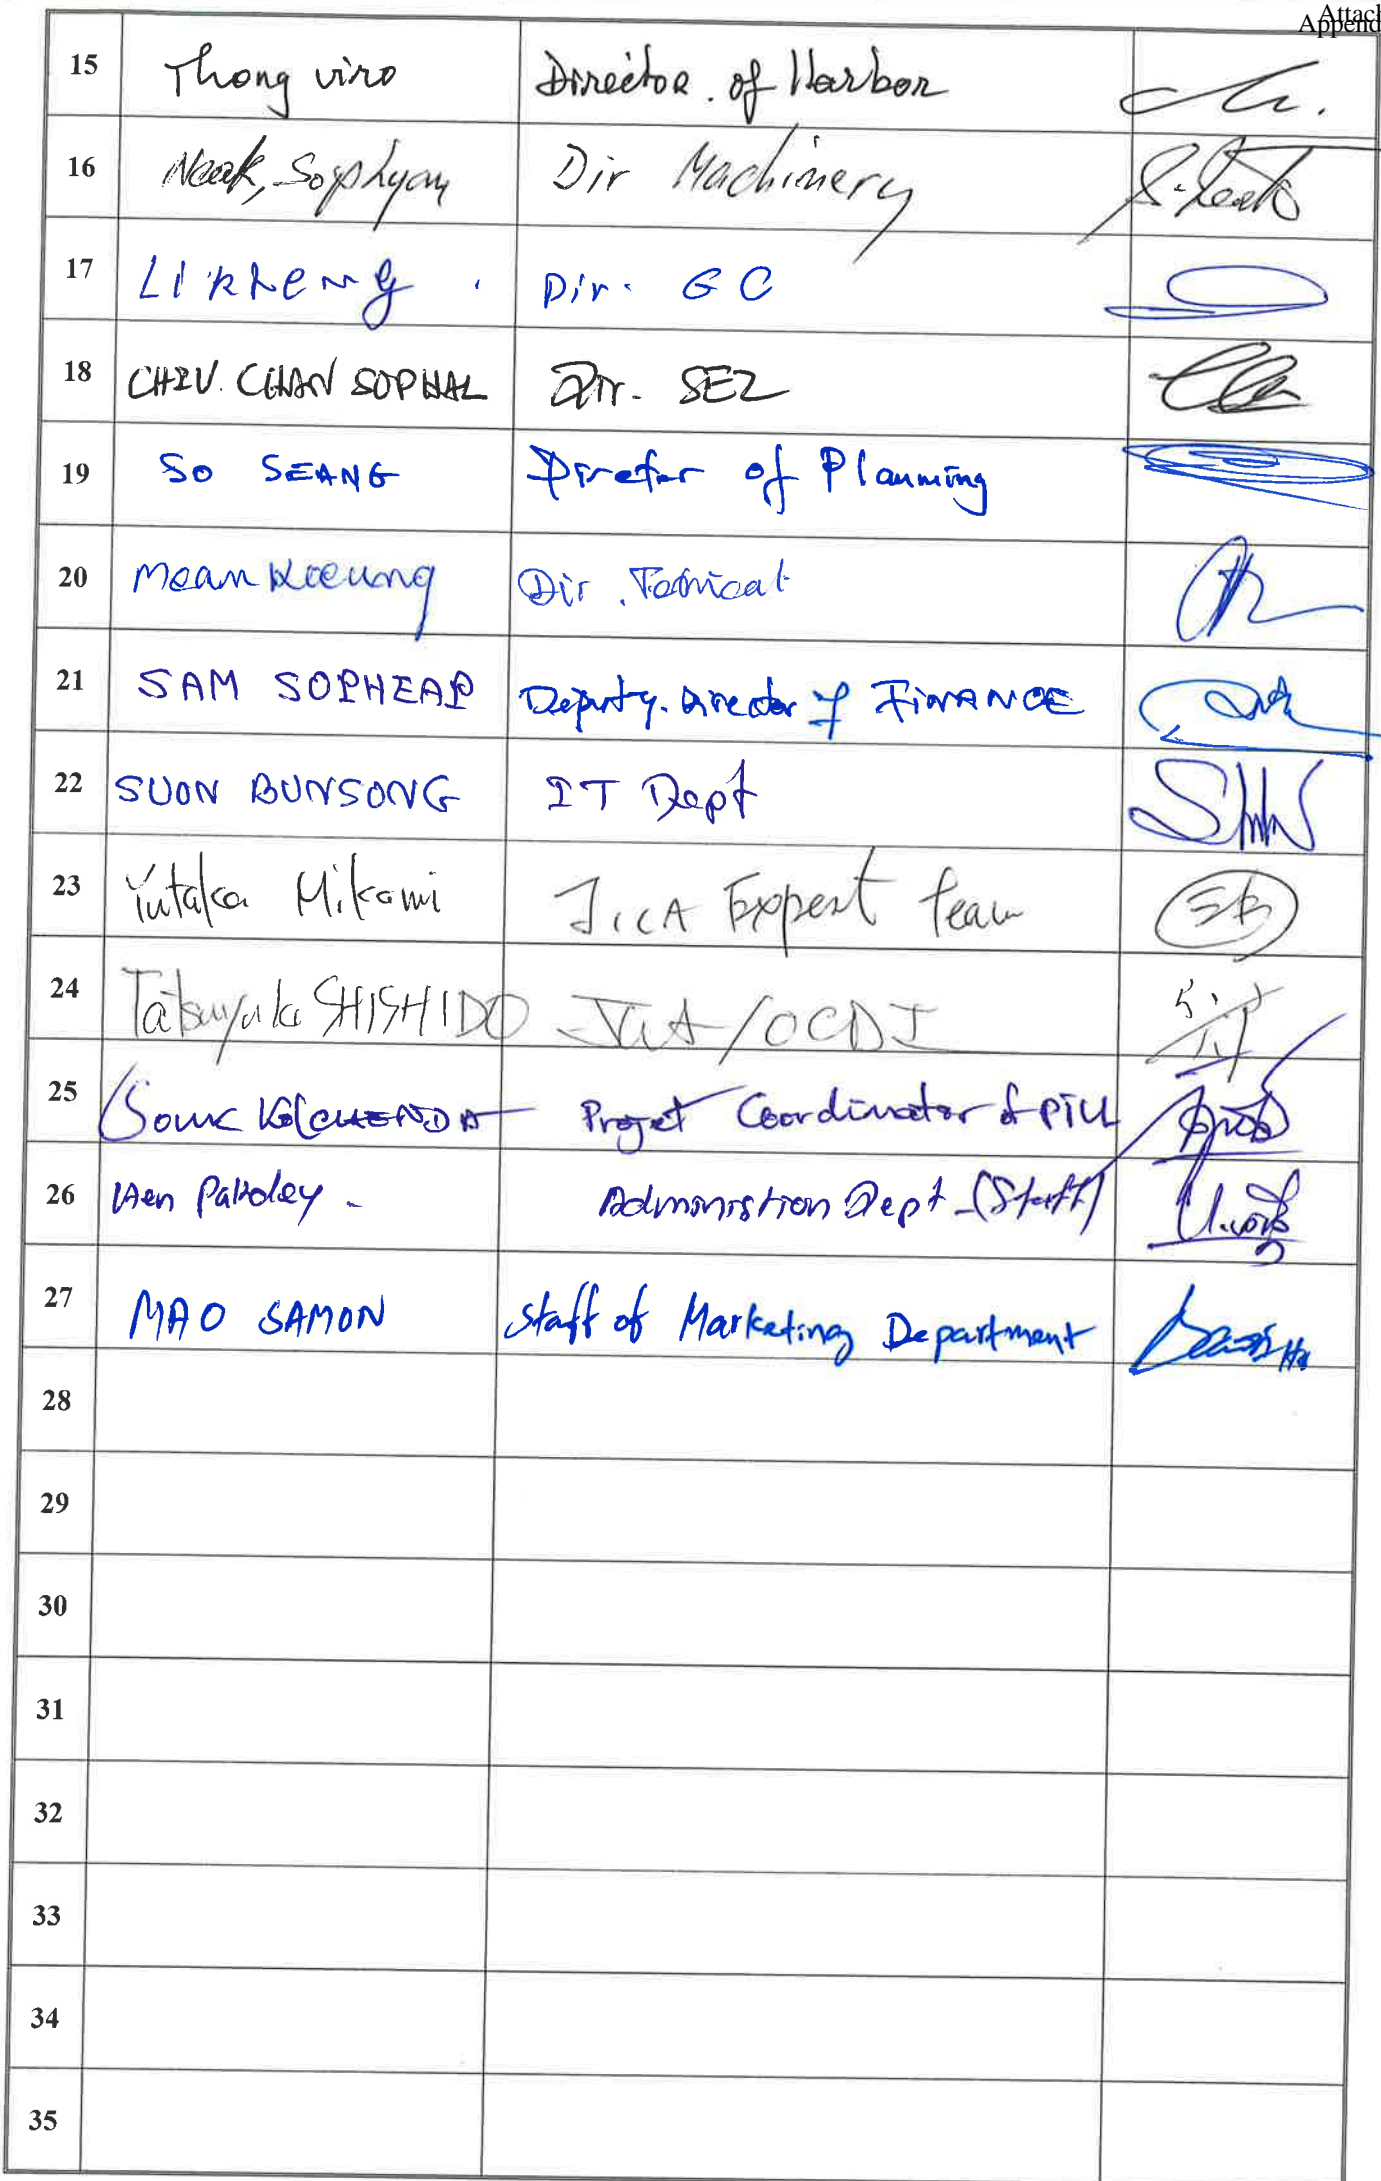 Attach
Append
15 Thong viro Director. of Harbor
16 Neak, Sophyou Dir Machinery
17 LI KHENG. Dir. GC
18 CHIV. CHAN SOPHAL Dir. SEZ
19 SO SEANG Diretor of Planning
20 Mean Dir.
21 SAM SOPHEAP Deputy. Director of FINANCE
22 SUON BUNSONG IT Dept
23 Yutaka Mikami JICA Expert Team
24 Tatsuyuki SHISHIDO JICA/OCDI
25 Projet Coordinator of
26 Administion Dept-(Staff)
27 MAO SAMON Staff of Marketing Department
28
29
30
31
32
33
34
35